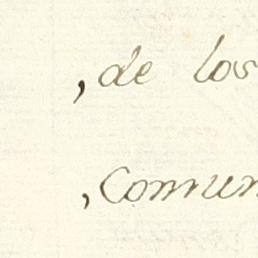 , de los
, Comun